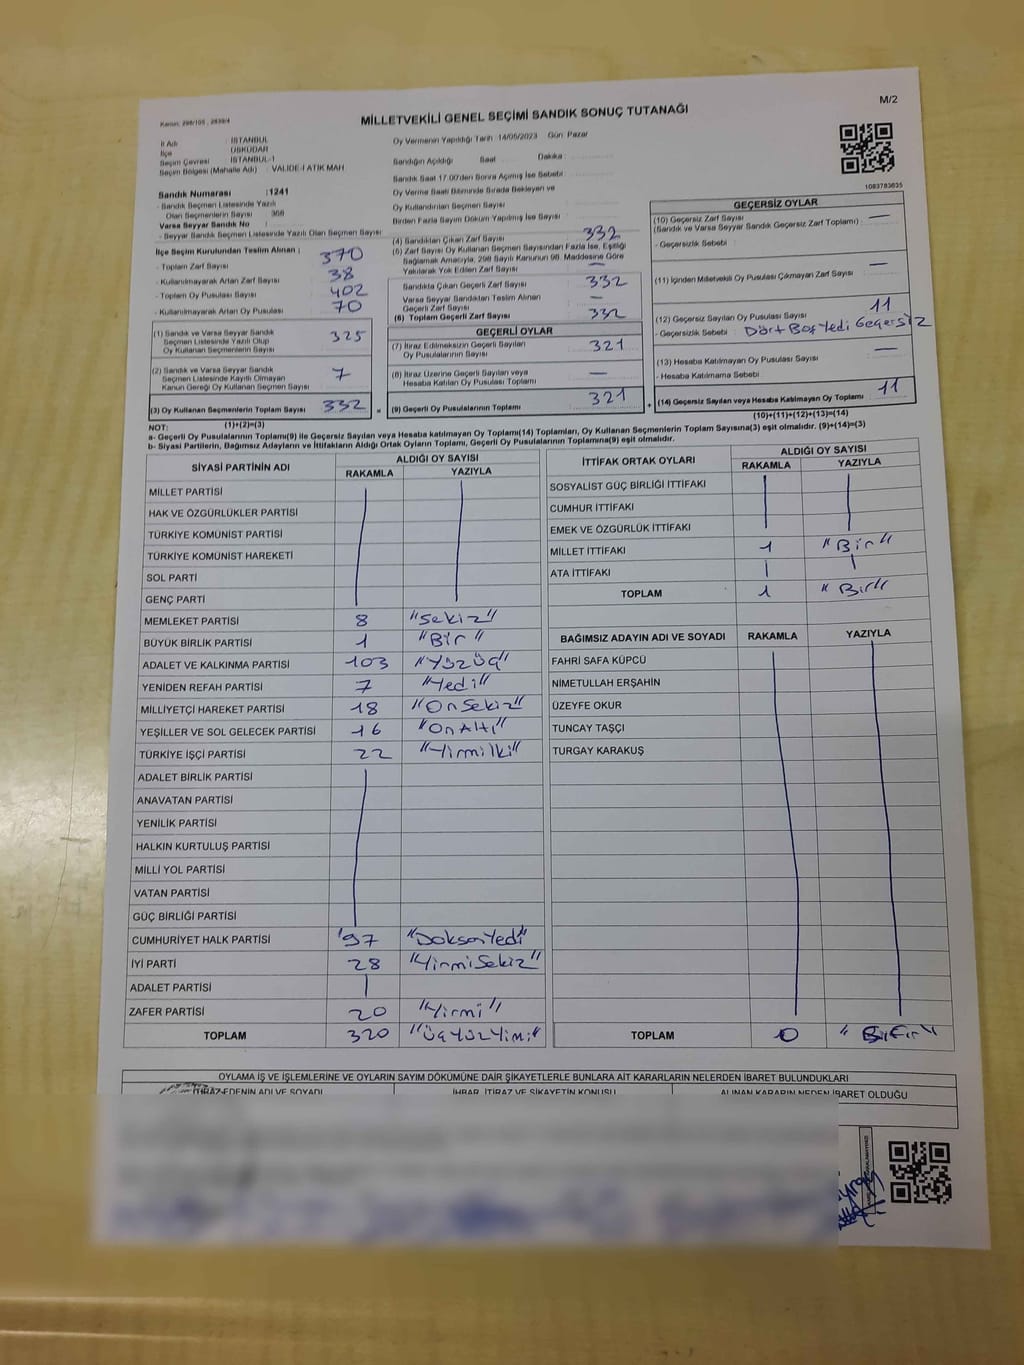 M/2
Kanun: 298/105 , 2839/4
MİLLETVEKİLİ GENEL SEÇİMİ SANDIK SONUÇ TUTANAĞI
İl Adı : İSTANBUL
İlçe : ÜSKÜDAR
Seçim Çevresi : İSTANBUL-1
Seçim Bölgesi (Mahalle Adı) : VALİDE-İ ATİK MAH
Sandık Numarası : 1241
- Sandık Seçmen Listesinde Yazılı
Olan Seçmenlerin Sayısı : 368
Varsa Seyyar Sandık No :
- Seyyar Sandık Seçmen Listesinde Yazılı Olan Seçmen Sayısı
Oy Vermenin Yapıldığı Tarih :14/05/2023 Gün: Pazar
Sandığın Açıldığı Saat Dakika :
Sandık Saat 17.00'den Sonra Açılmış İse Sebebi
Oy Verme Saati Bitiminde Sırada Bekleyen ve
Oy Kullandırılan Seçmen Sayısı
Birden Fazla Sayım Döküm Yapılmış İse Sayısı :
1083783635
İlçe Seçim Kurulundan Teslim Alınan ;
- Toplam Zarf Sayısı 370
- Kullanılmayarak Artan Zarf Sayısı 38
- Toplam Oy Pusulası Sayısı 402
- Kullanılmayarak Artan Oy Pusulası 70
(1) Sandık ve Varsa Seyyar Sandık
Seçmen Listesinde Yazılı Olup
Oy Kullanan Seçmenlerin Sayısı 325
(2) Sandık ve Varsa Seyyar Sandık
Seçmen Listesinde Kayıtlı Olmayan
Kanun Gereği Oy Kullanan Seçmen Sayısı 7
(3) Oy Kullanan Seçmenlerin Toplam Sayısı 332
(1)+(2)=(3)
(4) Sandıktan Çıkan Zarf Sayısı 332
(5) Zarf Sayısı Oy Kullanan Seçmen Sayısından Fazla İse, Eşitliği
Sağlamak Amacıyla, 298 Sayılı Kanunun 98. Maddesine Göre
Yakılarak Yok Edilen Zarf Sayısı —
Sandıkta Çıkan Geçerli Zarf Sayısı 332
Varsa Seyyar Sandıktan Teslim Alınan
Geçerli Zarf Sayısı —
(6) Toplam Geçerli Zarf Sayısı 332
GEÇERLİ OYLAR
(7) İtiraz Edilmeksizin Geçerli Sayılan
Oy Pusulalarının Sayısı 321
(8) İtiraz Üzerine Geçerli Sayılan veya
Hesaba Katılan Oy Pusulası Toplamı —
(9) Geçerli Oy Pusulalarının Toplamı 321
GEÇERSİZ OYLAR
(10) Geçersiz Zarf Sayısı —
(Sandık ve Varsa Seyyar Sandık Geçersiz Zarf Toplamı) :
- Geçersizlik Sebebi :
(11) İçinden Milletvekili Oy Pusulası Çıkmayan Zarf Sayısı —
(12) Geçersiz Sayılan Oy Pusulası Sayısı : 11
- Geçersizlik Sebebi : Dört Boş Yedi Geçersiz
(13) Hesaba Katılmayan Oy Pusulası Sayısı —
- Hesaba Katılmama Sebebi
(14) Geçersiz Sayılan veya Hesaba Katılmayan Oy Toplamı : 11
(10)+(11)+(12)+(13)=(14)
NOT:
a- Geçerli Oy Pusulalarının Toplamı(9) ile Geçersiz Sayılan veya Hesaba katılmayan Oy Toplamı(14) Toplamları, Oy Kullanan Seçmenlerin Toplam Sayısına(3) eşit olmalıdır. (9)+(14)=(3)
b- Siyasi Partilerin, Bağımsız Adayların ve İttifakların Aldığı Ortak Oyların Toplamı, Geçerli Oy Pusulalarının Toplamına(9) eşit olmalıdır.
SİYASİ PARTİNİN ADI ALDIĞI OY SAYISI
RAKAMLA YAZIYLA
MİLLET PARTİSİ
HAK VE ÖZGÜRLÜKLER PARTİSİ
TÜRKİYE KOMÜNİST PARTİSİ
TÜRKİYE KOMÜNİST HAREKETİ
SOL PARTİ
GENÇ PARTİ
MEMLEKET PARTİSİ 8 "Sekiz"
BÜYÜK BİRLİK PARTİSİ 1 "Bir"
ADALET VE KALKINMA PARTİSİ 103 "Yüzüç"
YENİDEN REFAH PARTİSİ 7 "Yedi"
MİLLİYETÇİ HAREKET PARTİSİ 18 "OnSekiz"
YEŞİLLER VE SOL GELECEK PARTİSİ 16 "OnAltı"
TÜRKİYE İŞÇİ PARTİSİ 22 "Yirmiİki"
ADALET BİRLİK PARTİSİ
ANAVATAN PARTİSİ
YENİLİK PARTİSİ
HALKIN KURTULUŞ PARTİSİ
MİLLİ YOL PARTİSİ
VATAN PARTİSİ
GÜÇ BİRLİĞİ PARTİSİ
CUMHURİYET HALK PARTİSİ 97 "DoksanYedi"
İYİ PARTİ 28 "YirmiSekiz"
ADALET PARTİSİ
ZAFER PARTİSİ 20 "Yirmi"
TOPLAM 320 "ÜçYüzYimi"
İTTİFAK ORTAK OYLARI ALDIĞI OY SAYISI
RAKAMLA YAZIYLA
SOSYALİST GÜÇ BİRLİĞİ İTTİFAKI
CUMHUR İTTİFAKI
EMEK VE ÖZGÜRLÜK İTTİFAKI
MİLLET İTTİFAKI 1 "Bir"
ATA İTTİFAKI
TOPLAM 1 "Bir"
BAĞIMSIZ ADAYIN ADI VE SOYADI RAKAMLA YAZIYLA
FAHRİ SAFA KÜPCÜ
NİMETULLAH ERŞAHİN
ÜZEYFE OKUR
TUNCAY TAŞÇI
TURGAY KARAKUŞ
TOPLAM 0
OYLAMA İŞ VE İŞLEMLERİNE VE OYLARIN SAYIM DÖKÜMÜNE DAİR ŞİKAYETLERLE BUNLARA AİT KARARLARIN NELERDEN İBARET BULUNDUKLARI
İTİRAZ EDENİN ADI VE SOYADI İHBAR, İTİRAZ VE ŞİKAYETİN KONUSU ALINAN KARARIN NEDEN İBARET OLDUĞU